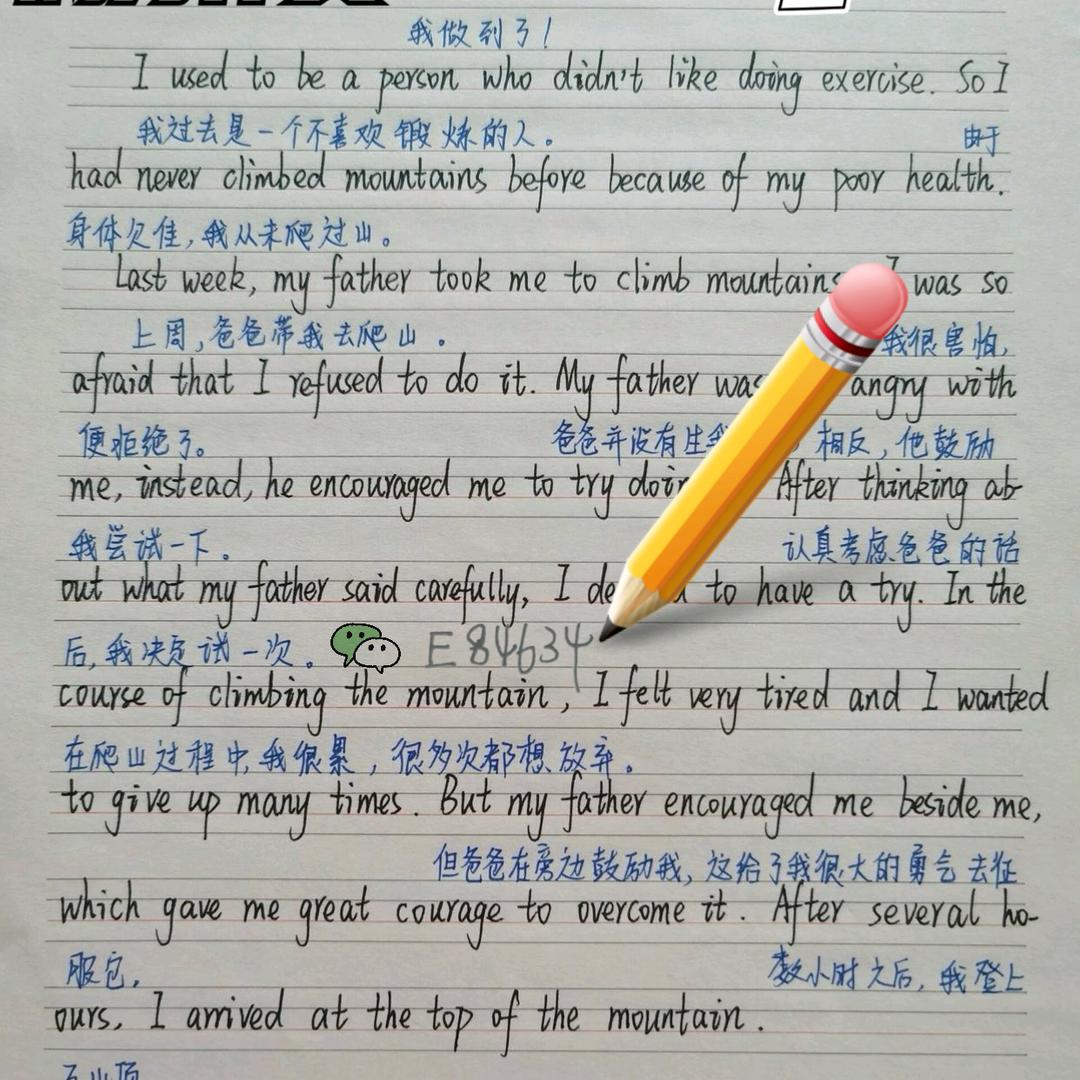 我做到了!
I used to be a person who didn't like doing exercise. So I
我过去是一个不喜欢锻炼的人。 由于
had never climbed mountains before because of my poor health.
身体欠佳,我从未爬过山。
Last week, my father took me to climb mountains I was so
上周,爸爸带我去爬山。 我很害怕,
afraid that I refused to do it. My father was angry with
便拒绝了。 爸爸并没有生 相反,他鼓励
me, instead, he encouraged me to try After thinking ab-
我尝试一下。 认真考虑爸爸的话
out what my father said carefully, I to have a try. In the
后,我决定试一次。 E84634
course of climbing the mountain, I felt very tired and I wanted
在爬山过程中,我很累,很多次都想放弃。
to give up many times. But my father encouraged me beside me,
但爸爸在旁边鼓励我,这给了我很大的勇气去征
which gave me great courage to overcome it. After several ho-
服它。 数小时之后,我登上
ours, I arrived at the top of the mountain.